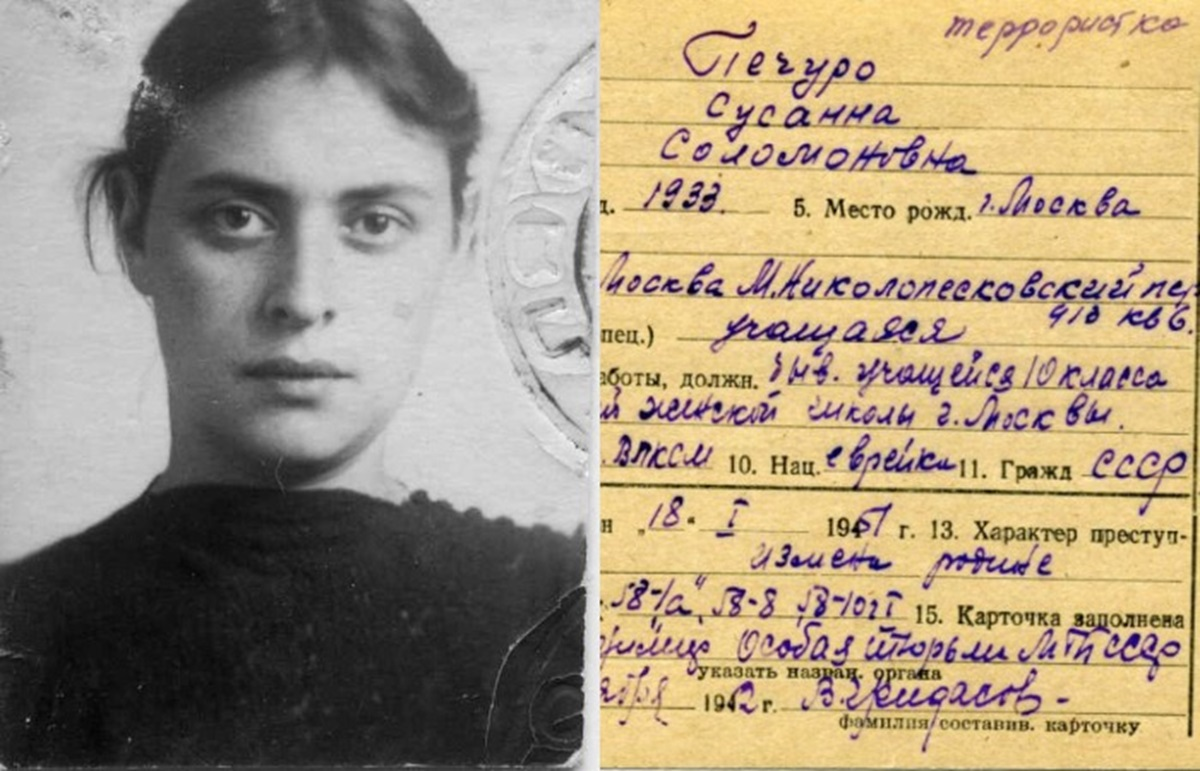 террористка
Печуро
Сусанна
Соломоновна
д. 1933. 5. Место рожд. г. Москва
Москва М. Николопесковский пер.
кв 6.
пец.) учащаяся
аботы, должн. учащейся 10 класса
й женской школы г. Москвы.
ВЛКСМ 10. Нац. еврейка 11. Гражд СССР
н „18" I 1951 г. 13. Характер преступ-
измена родине
58-1а", 58-8, 58-10 15. Карточка заполнена
Особая тюрьма СССР
указать назван. органа
1952 г.
фамилия составив. карточку